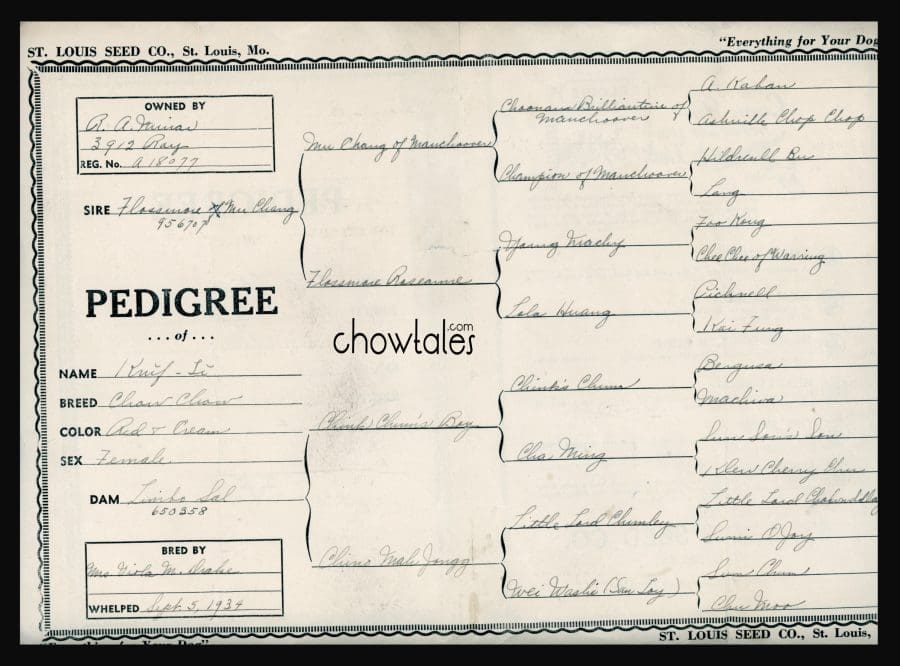 ST. LOUIS SEED CO., St. Louis, Mo.
"Everything for Your Dog
OWNED BY
R. A.
3912 Ray
REG. No. A 18077
SIRE Flossmore Mu Chang
956707
PEDIGREE
... of ...
NAME
BREED Chow Chow
COLOR Red & Cream
SEX Female
DAM Limbo Sal
650358
BRED BY
Mrs Viola M. Drake
WHELPED Sept. 5, 1934
Mu Chang of Manchoover
Flossmore Roseanne
chowtales.com
Chinks Chum's Boy
Chino Mah Jongg
Choonam Brilliantine of
Manchoover
Champion of Manchoover
Young
Lola Huang
Chinkis Chum
Cha Ming
Little Lord Chumley
Wei Washi (San Toy)
A. Kaban
Ashville Chop Chop
Hildrenll Bu
Lang
Foo Kong
Chee Chee of Warring
Picknell
Kai Fung
Bergusa
Machiva
Sun Son's Son
Cherry Chu
Little Lord
O'Joy
Sum Chum
Chu Moo
ST. LOUIS SEED CO., St. Louis,
"Everything for Your Dog"